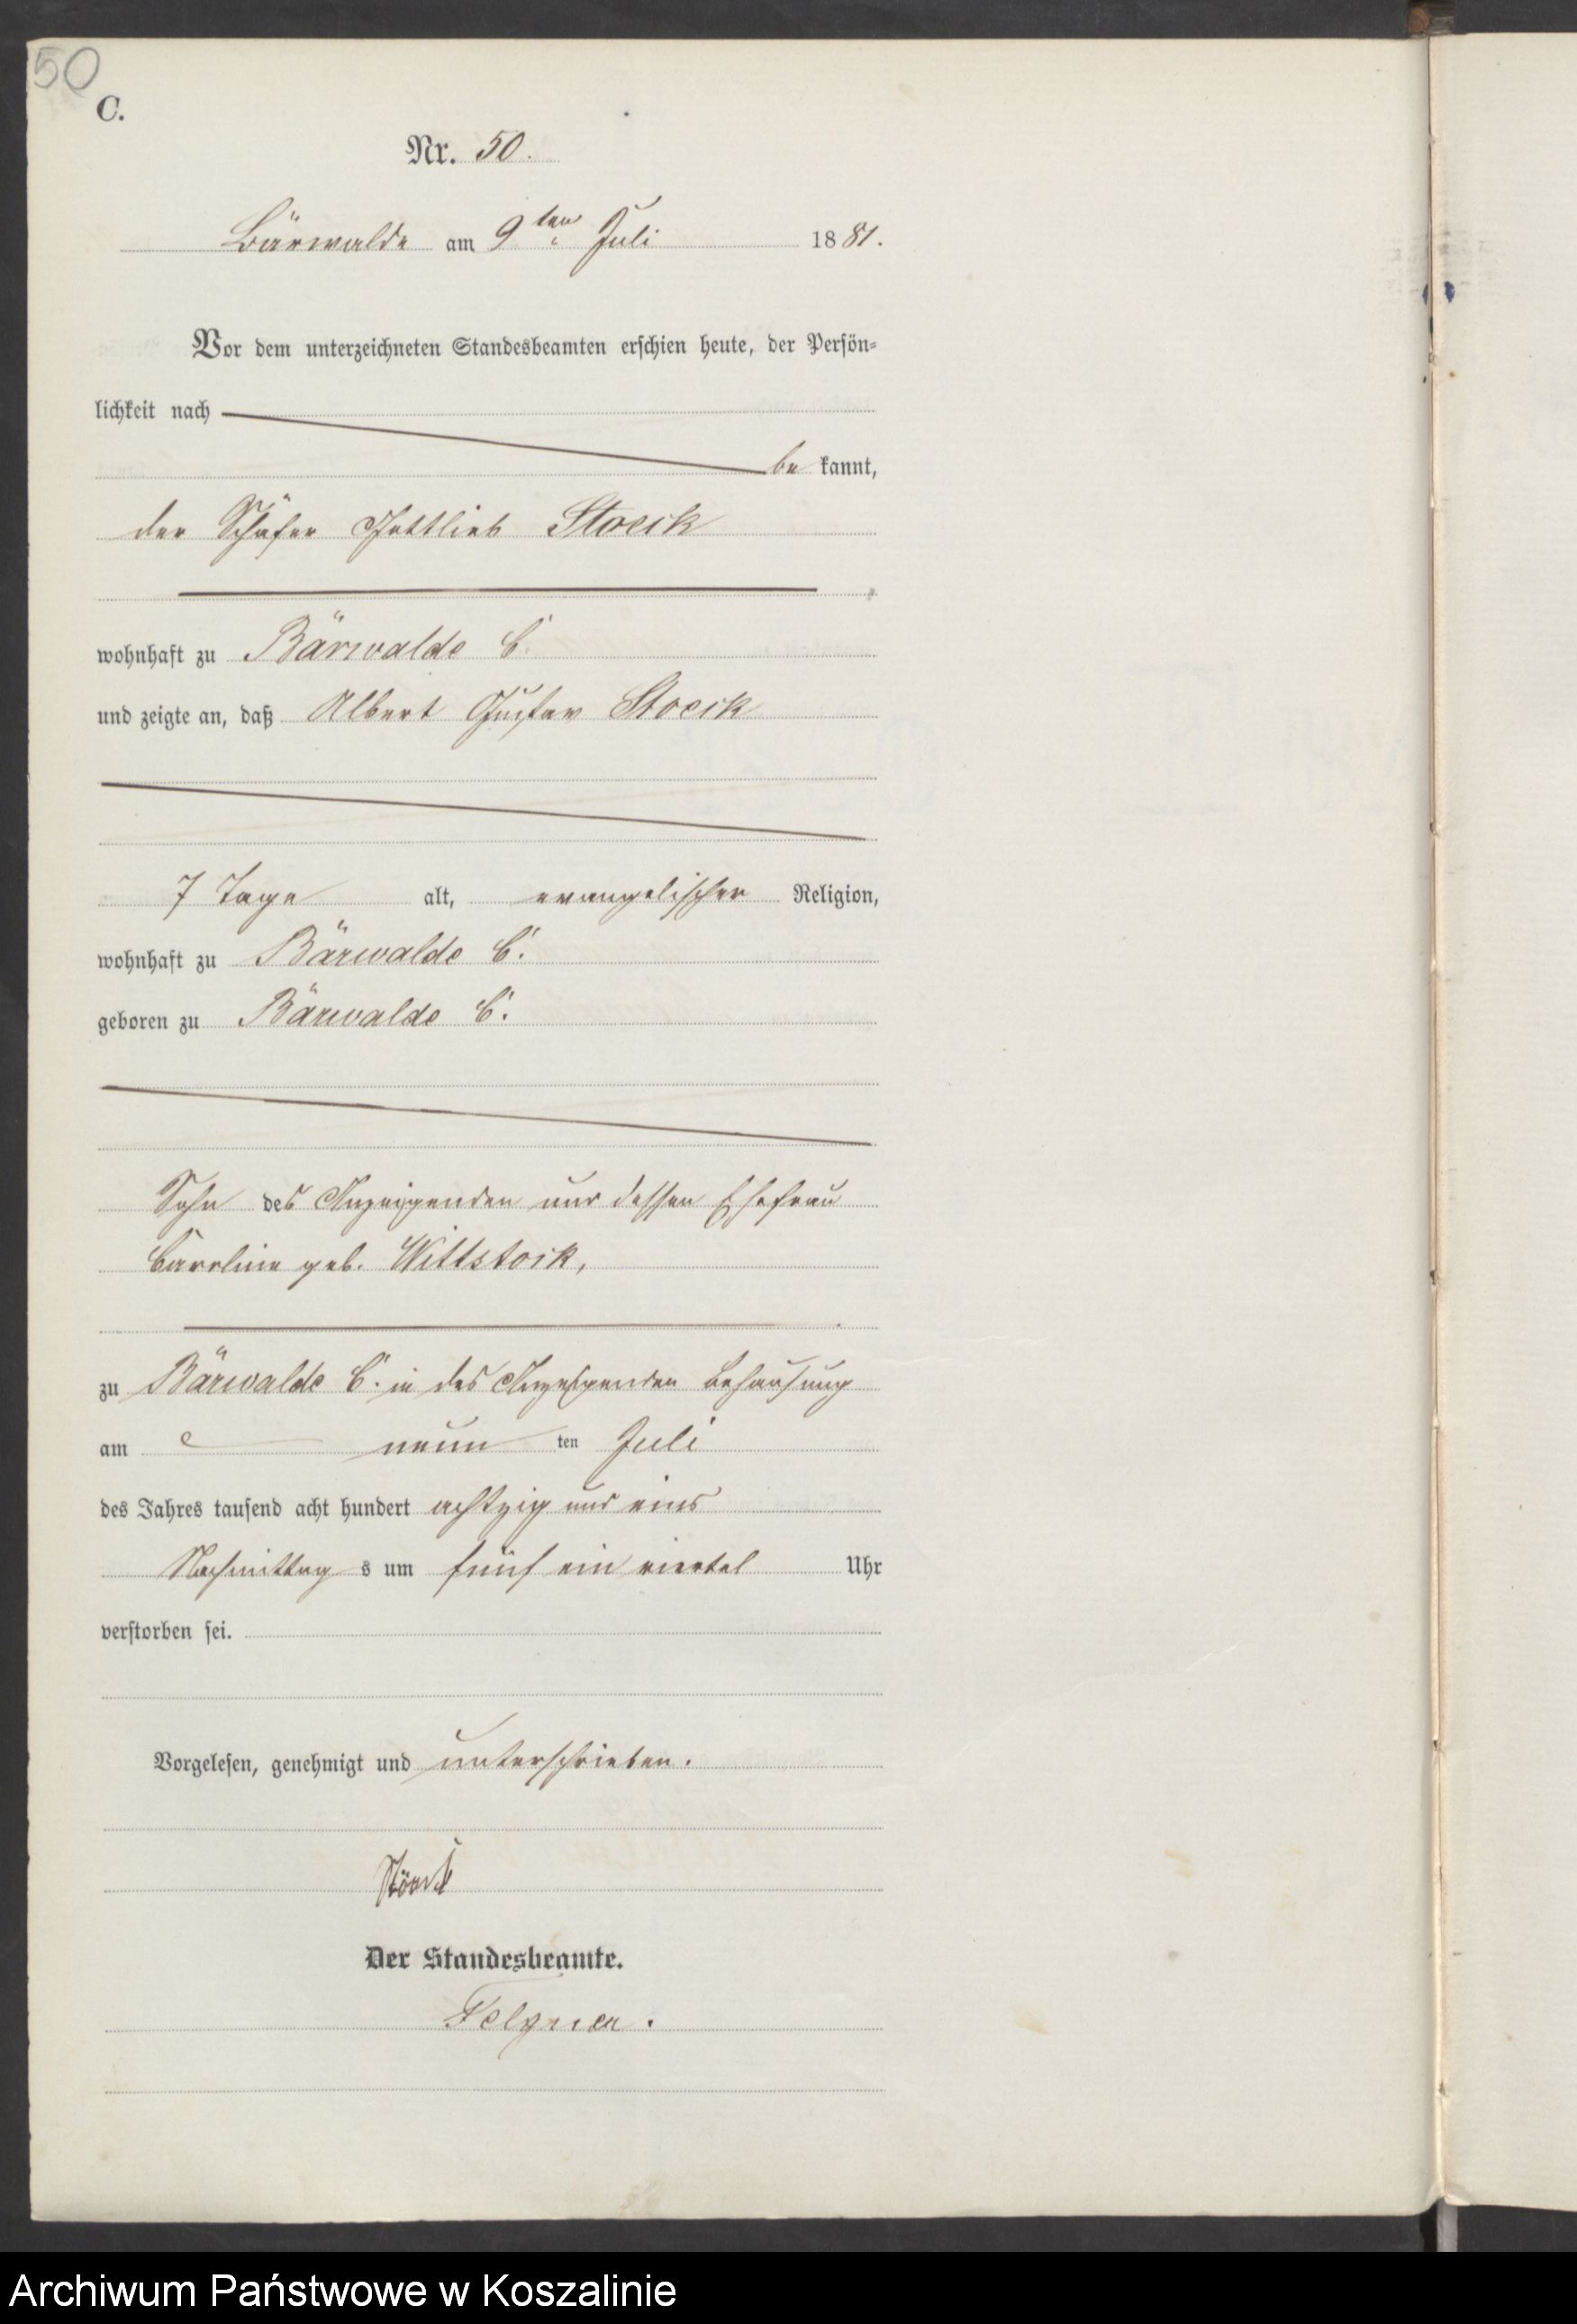 50
C.
Nr. 50.
Bärwalde am 9ten Juli 1881.
Vor dem unterzeichneten Standesbeamten erschien heute, der Persön-
lichkeit nach
be kannt,
der Schäfer Gottlieb Stoeck
wohnhaft zu Bärwalde C.
und zeigte an, daß Albert Gustav Stoeck
7 Tage alt, evangelischer Religion,
wohnhaft zu Bärwalde C.
geboren zu Bärwalde C.
Sohn des Anzeigenden und dessen Ehefrau
Caroline geb. Wittstock,
zu Bärwalde C. in des Anzeigenden Behausung
am neun ten Juli
des Jahres tausend acht hundert achtzig und eins
Nachmittag s um fünf ein viertel Uhr
verstorben sei.
Vorgelesen, genehmigt und unterschrieben.
Stöck
Der Standesbeamte.
Felgner.
Archiwum Państwowe w Koszalinie